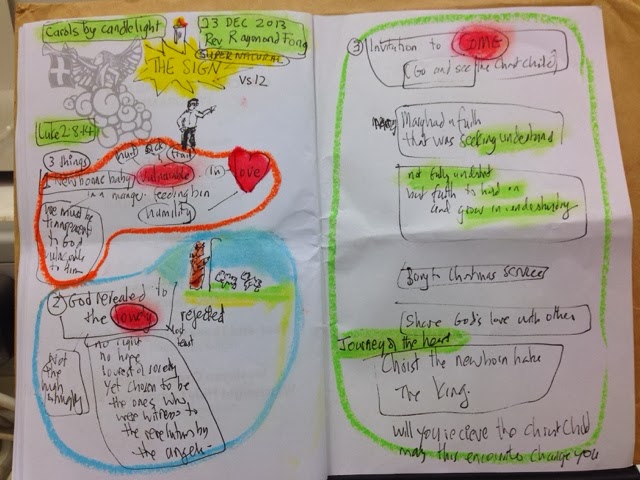 Carols by candlelight
23 DEC 2013
Rev Raymond Fong
SUPERNATURAL
THE SIGN
VS 12
Luke 2:8-14
3 things
1 Newborne baby vulnerable in love
in a manger feeding bin
humility
we must be
transparent
to God
vulnerable
to Him
2 God revealed to
the lowly
rejected
Not
the
high
no right
no hope
lowest of society
Yet chosen to be
the ones who
were witness to
the revelation by
the angels-
3 Invitation to
(Go and see the Christ Child)
Mary had a faith
that was seeking understand
not fully understand
but faith to hold on
and grow in understanding
to Christmas services
Share God's love with other
Journey of the heart
Christ the newborn babe
The King.
will you recieve the Christ Child
may this encounter change you